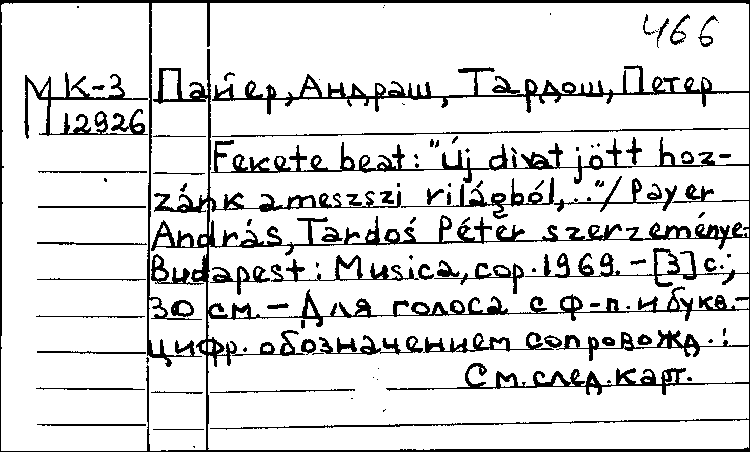 466
М К-3 Пайер, Андраш, Тардош, Петер
12926
Fekete beat: "Új divat jött hoz-
zánk a meszszi világból,.."/ Payer
András, Tardoś Péter szerzeménye.
Budapest: Musica, cop. 1969. – [3] с.;
30 см. – Для голоса с ф-п. и букв.-
цифр. обозначением сопровожд.:
См. след. карт.